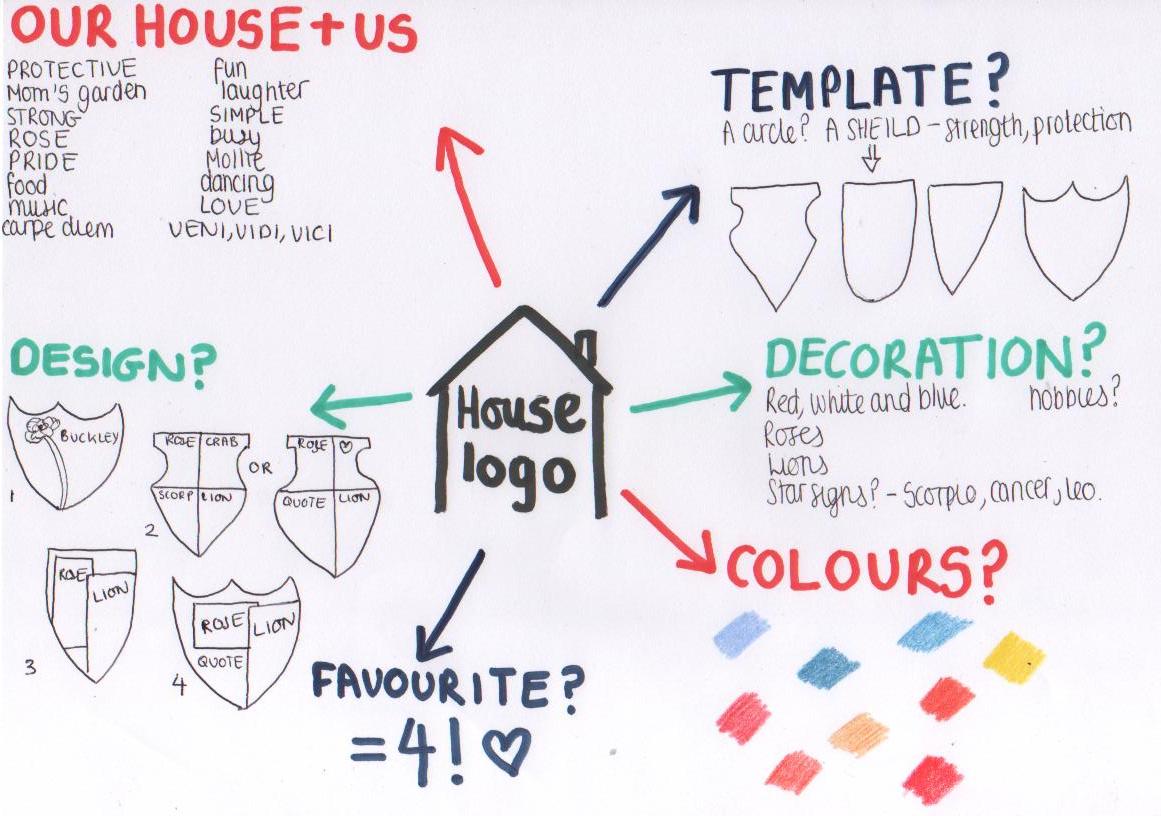 OUR HOUSE + US
PROTECTIVE
Mom's garden
STRONG
ROSE
PRIDE
food
music
carpe diem
fun
laughter
SIMPLE
busy
Mollie
dancing
LOVE
VENI, VIDI, VICI
TEMPLATE?
A circle? A SHEILD - strength, protection
DESIGN?
BUCKLEY
1
ROSE CRAB
SCORP LION
2
OR
ROSE ♡
QUOTE LION
ROSE
LION
3
ROSE LION
QUOTE
4
House
logo
DECORATION?
Red, white and blue. hobbies?
Roses
Lions
Star signs? - Scorpio, cancer, leo.
COLOURS?
FAVOURITE?
= 4! ♡